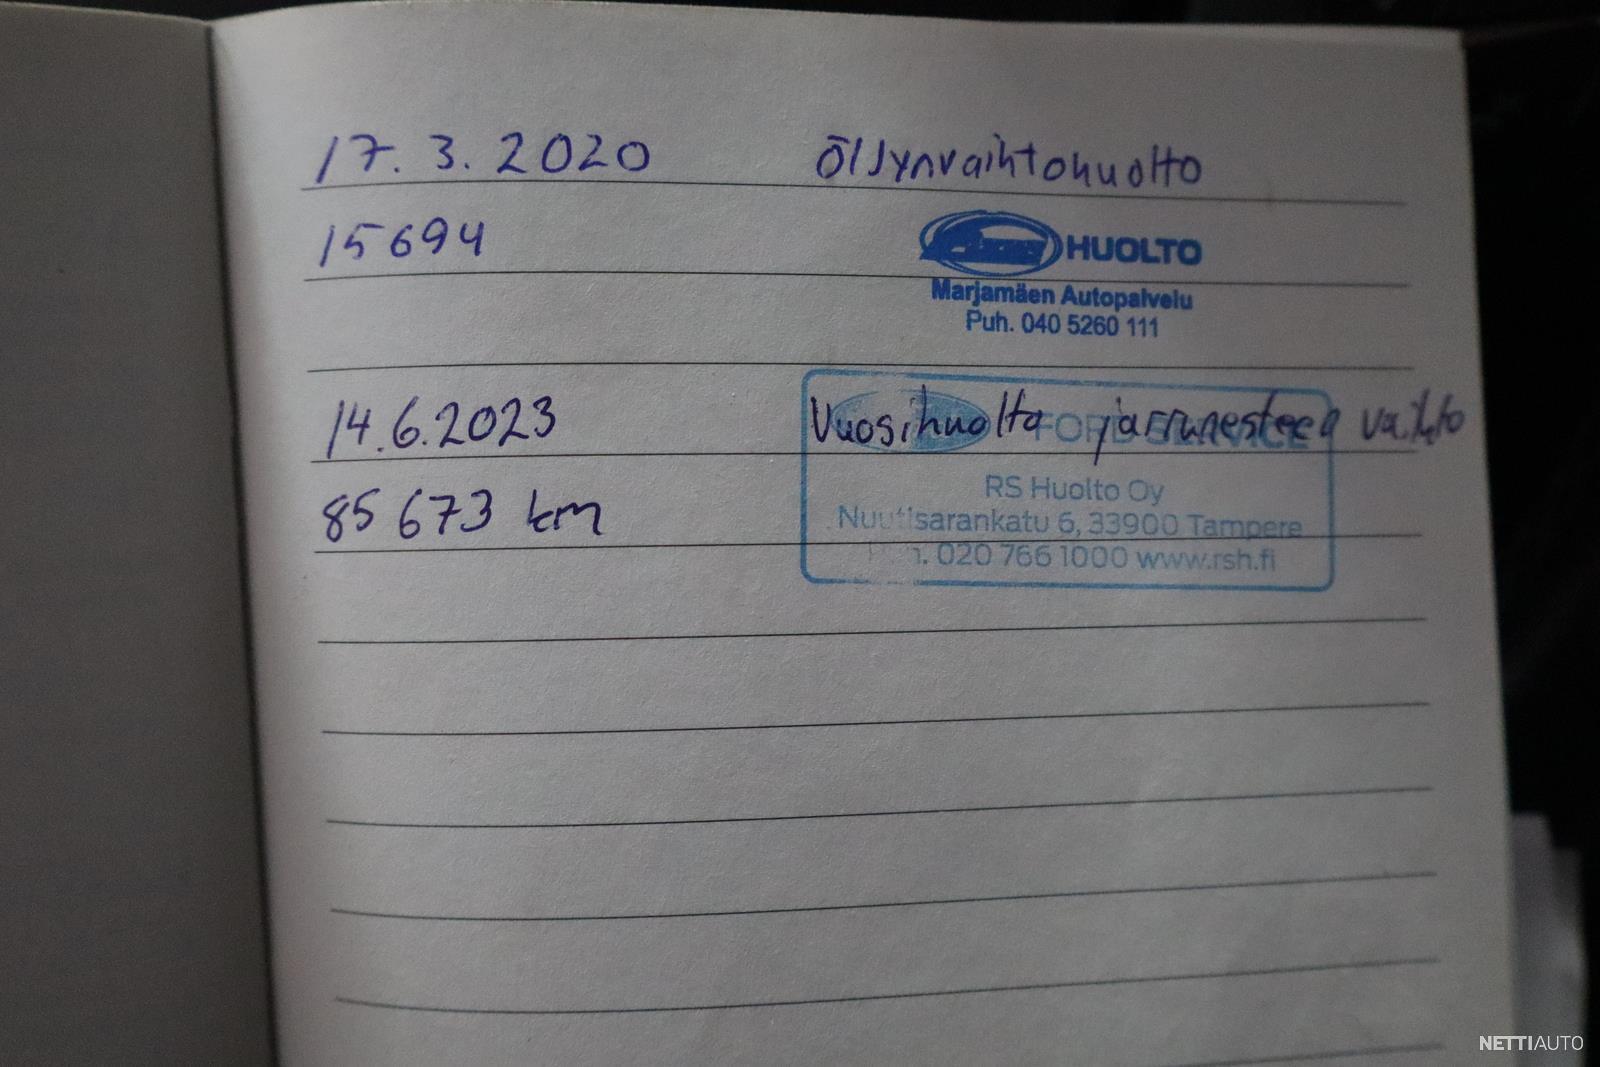 17.3.2020 Öljynvaihtohuolto
15694
HUOLTO
Marjamäen Autopalvelu
Puh. 040 5260 111
14.6.2023 Vuosihuolto jarrunesteen vaihto
FORD SERVICE
85 673 km
RS Huolto Oy
Nuutisarankatu 6, 33900 Tampere
020 766 1000 www.rsh.fi
NETTIAUTO